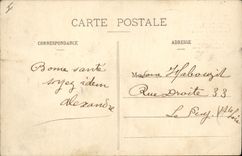 CARTE POSTALE
CORRESPONDANCE
ADRESSE
Bonne santé
soyez idem
Alexandre
Madame
Rue Droite 33
Le Puy Hte Loire